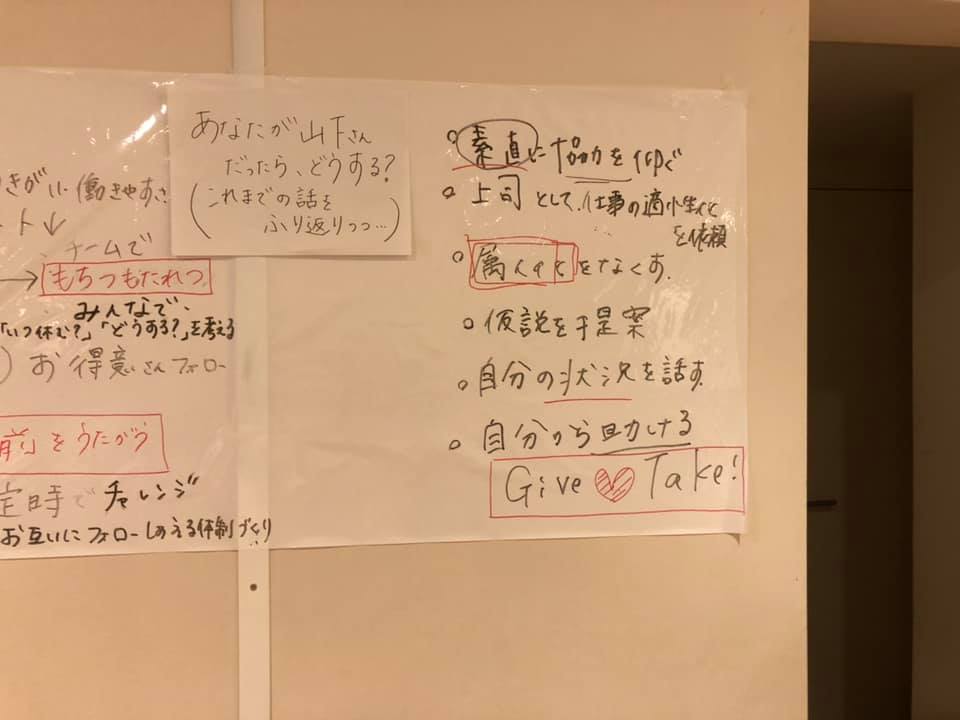 きがい 働きやすさ
ト↓
チームで
→ もちつもたれつ
みんなで、
「いつ休む?」「どうする?」を考える
) お得意さんフォロー
前」をうたがう
定時でチャレンジ
お互いにフォローしあえる体制づくり
あなたが山下さん
だったら、どうする?
(これまでの話を
ふり返りつつ…)
○ 素直に協力を仰ぐ
○ 上司として、仕事の適正化
を依頼
○ 属人化をなくす。
○ 仮説を提案
○ 自分の状況を話す
○ 自分から助ける
Give ♥ Take!